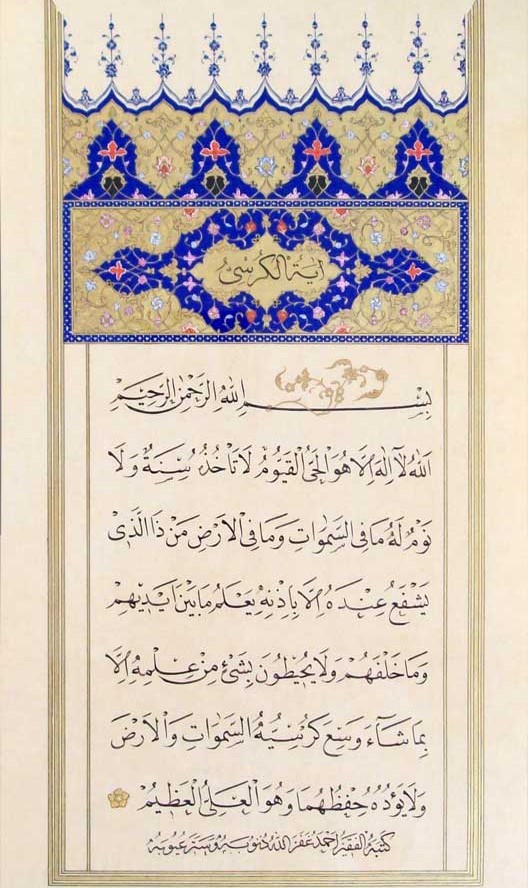 اٰيَةُ الْكُرْسِيِّ
بِسْمِ اللّٰهِ الرَّحْمٰنِ الرَّحِيْمِ
اَللّٰهُ لَٓا اِلٰهَ اِلَّا هُوَ الْحَيُّ الْقَيُّوْمُ لَا تَاْخُذُهُ سِنَةٌ وَلَا
نَوْمٌ لَهُ مَا فِي السَّمٰوَاتِ وَمَا فِي الْاَرْضِ مَنْ ذَا الَّذٖي
يَشْفَعُ عِنْدَهُ اِلَّا بِاِذْنِهٖ يَعْلَمُ مَا بَيْنَ اَيْدٖيهِمْ
وَمَا خَلْفَهُمْ وَلَا يُحٖيطُونَ بِشَيْئٍ مِنْ عِلْمِهٖ اِلَّا
بِمَا شَٓاءَ وَسِعَ كُرْسِيُّهُ السَّمٰوَاتِ وَالْاَرْضَ
وَلَا يَؤُدُهُ حِفْظُهُمَا وَهُوَ الْعَلِيُّ الْعَظٖيمُ
كتبه الفقير احمد غفر الله ذنوبه وستر عيوبه